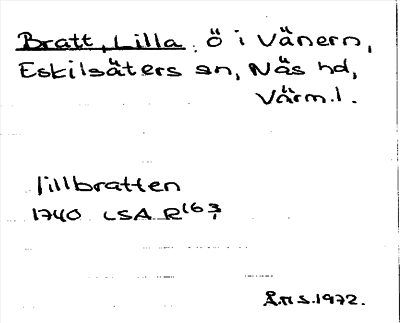 Bratt, Lilla. Ö i Vänern,
Eskilsäters sn, Näs hd,
Värm.l.
lillbratten
1740 LSA R 163
Å.N S. 1972.